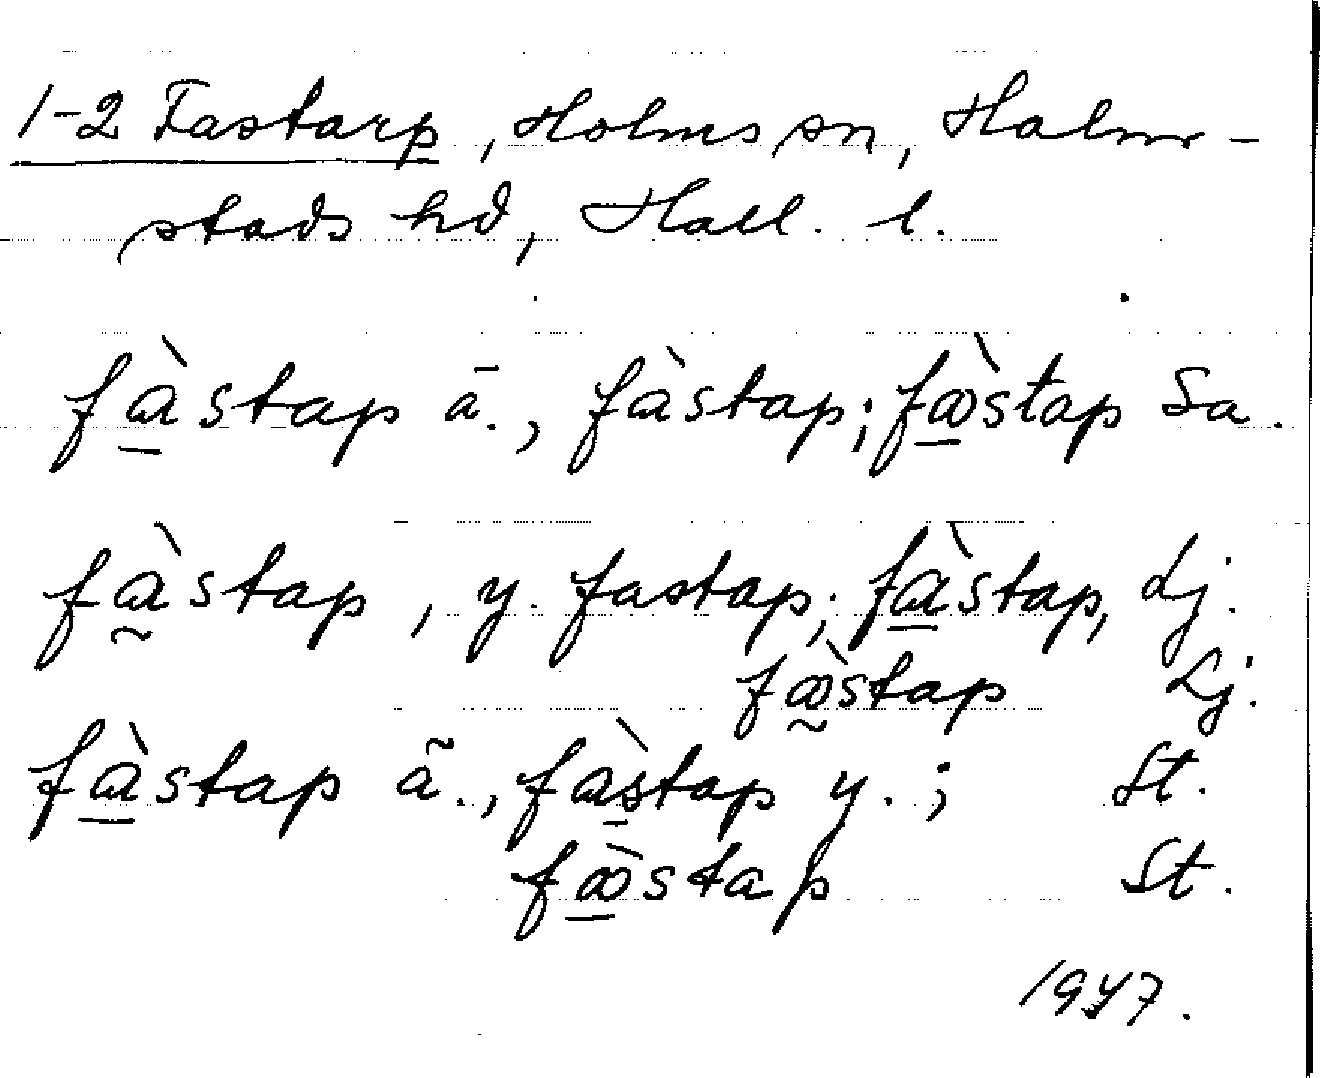 1-2 Fastarp, Holms sn, Halm-
stads hd, Hall. l.
fàstap ā., fàstap; fàstap Sa.
fàstap, y. fastap; fàstap, Lj.
fàstap Lj.
fàstap ã., fàstap y. ; St.
fàstap St.
1947.